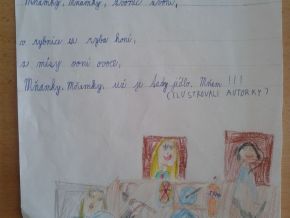 Mňamky, Mňamky, zvonec zvoní,
v rybníce se ryba honí,
z mísy voní ovoce,
Mňamky, Mňamky, už je tady jídlo. Mňam !!!
(ILUSTROVALI AUTORKY)